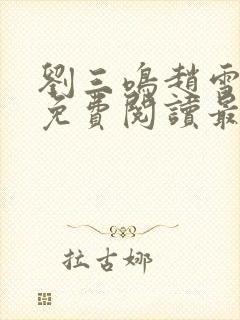 劉三鳴趙雪
免費閱讀最
拉古娜